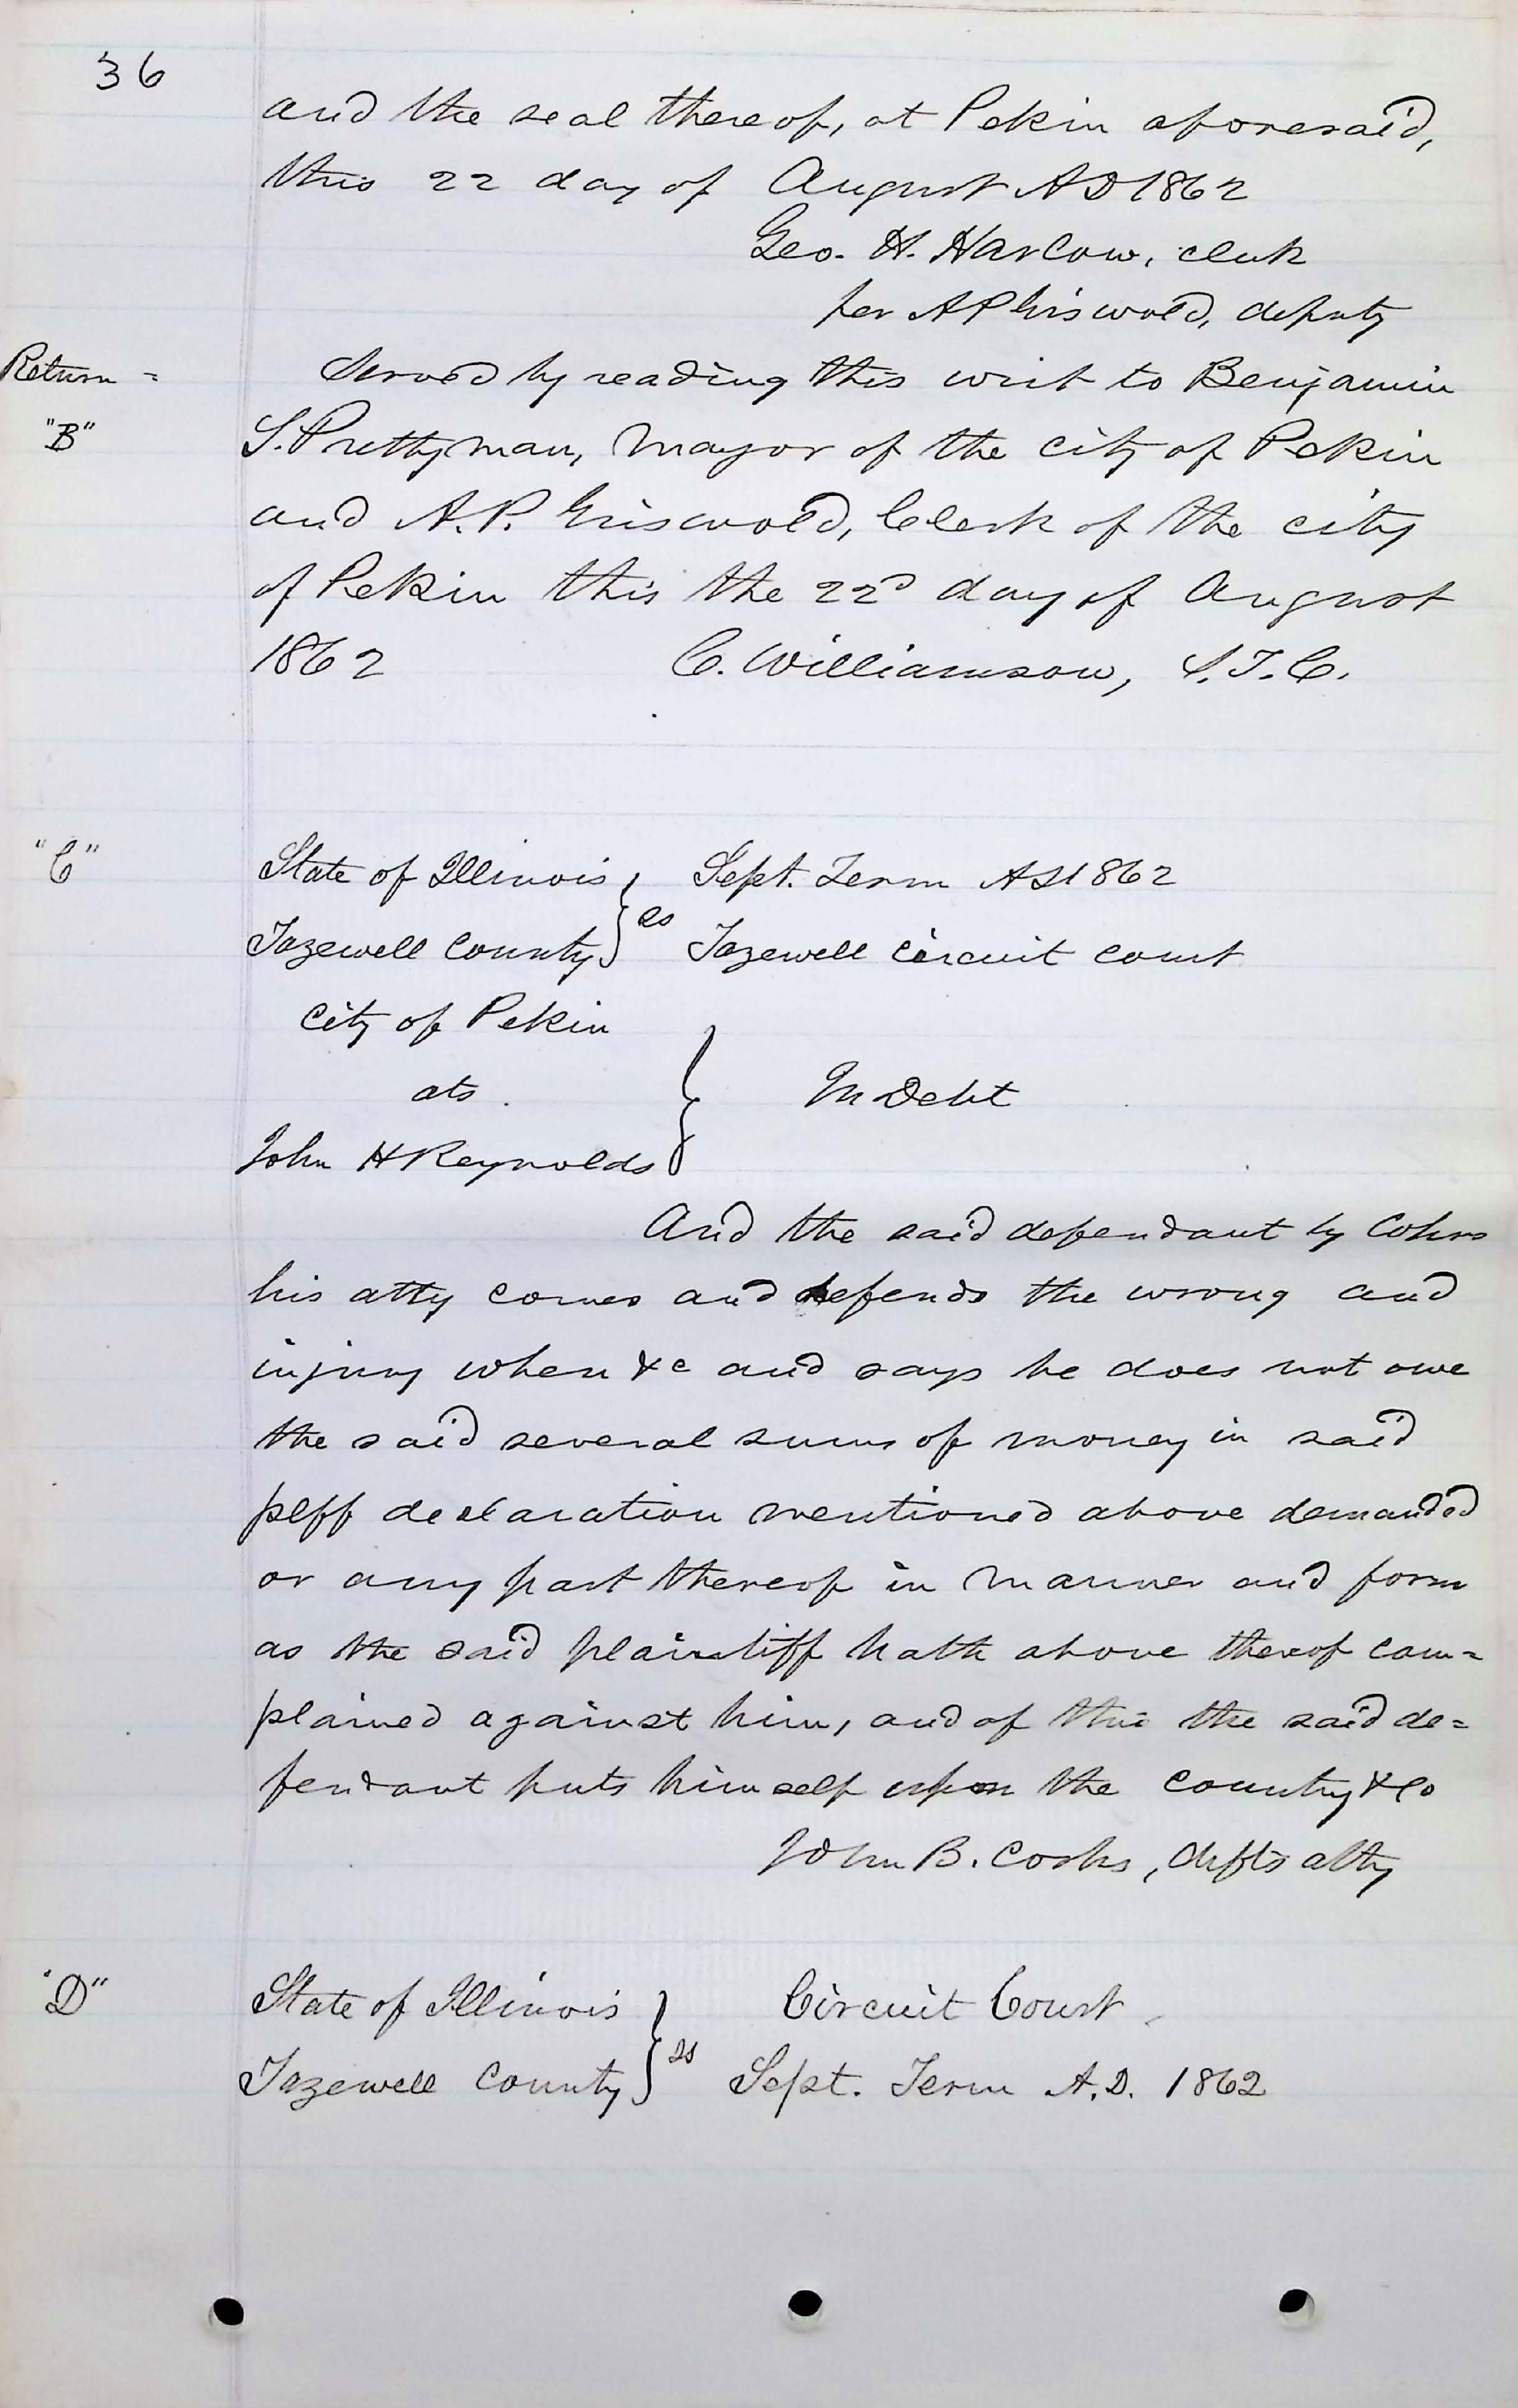 36
and the seal thereof, at Pekin aforesaid,
this 22 day of August AD 1862
Geo. H. Harlow, clerk
per A P Griswold, deputy
Return =
Served by reading this writ to Benjamin
"B"
S. Prettyman, Mayor of the city of Pekin
and A. P. Griswold, Clerk of the city
of Pekin this the 22d day of August
1862 C. Williamson, S. T. C.
"C"
State of Illinois } Sept. Term AD 1862
Tazewell County } ss Tazewell Circuit court
City of Pekin
ats
John H Reynolds } In Debt
And the said defendant by Cohrs
his atty comes and defends the wrong and
injury when &c and says he does not owe
the said several sums of money in said
plff declaration mentioned above demanded
or any part thereof in manner and form
as the said plaintiff hath above thereof com=
plained against him, and of this the said de=
fendant puts himself upon the country &c
John B. Cohrs, defts atty
"D"
State of Illinois } Circuit Court
Tazewell County } ss Sept. Term A.D. 1862